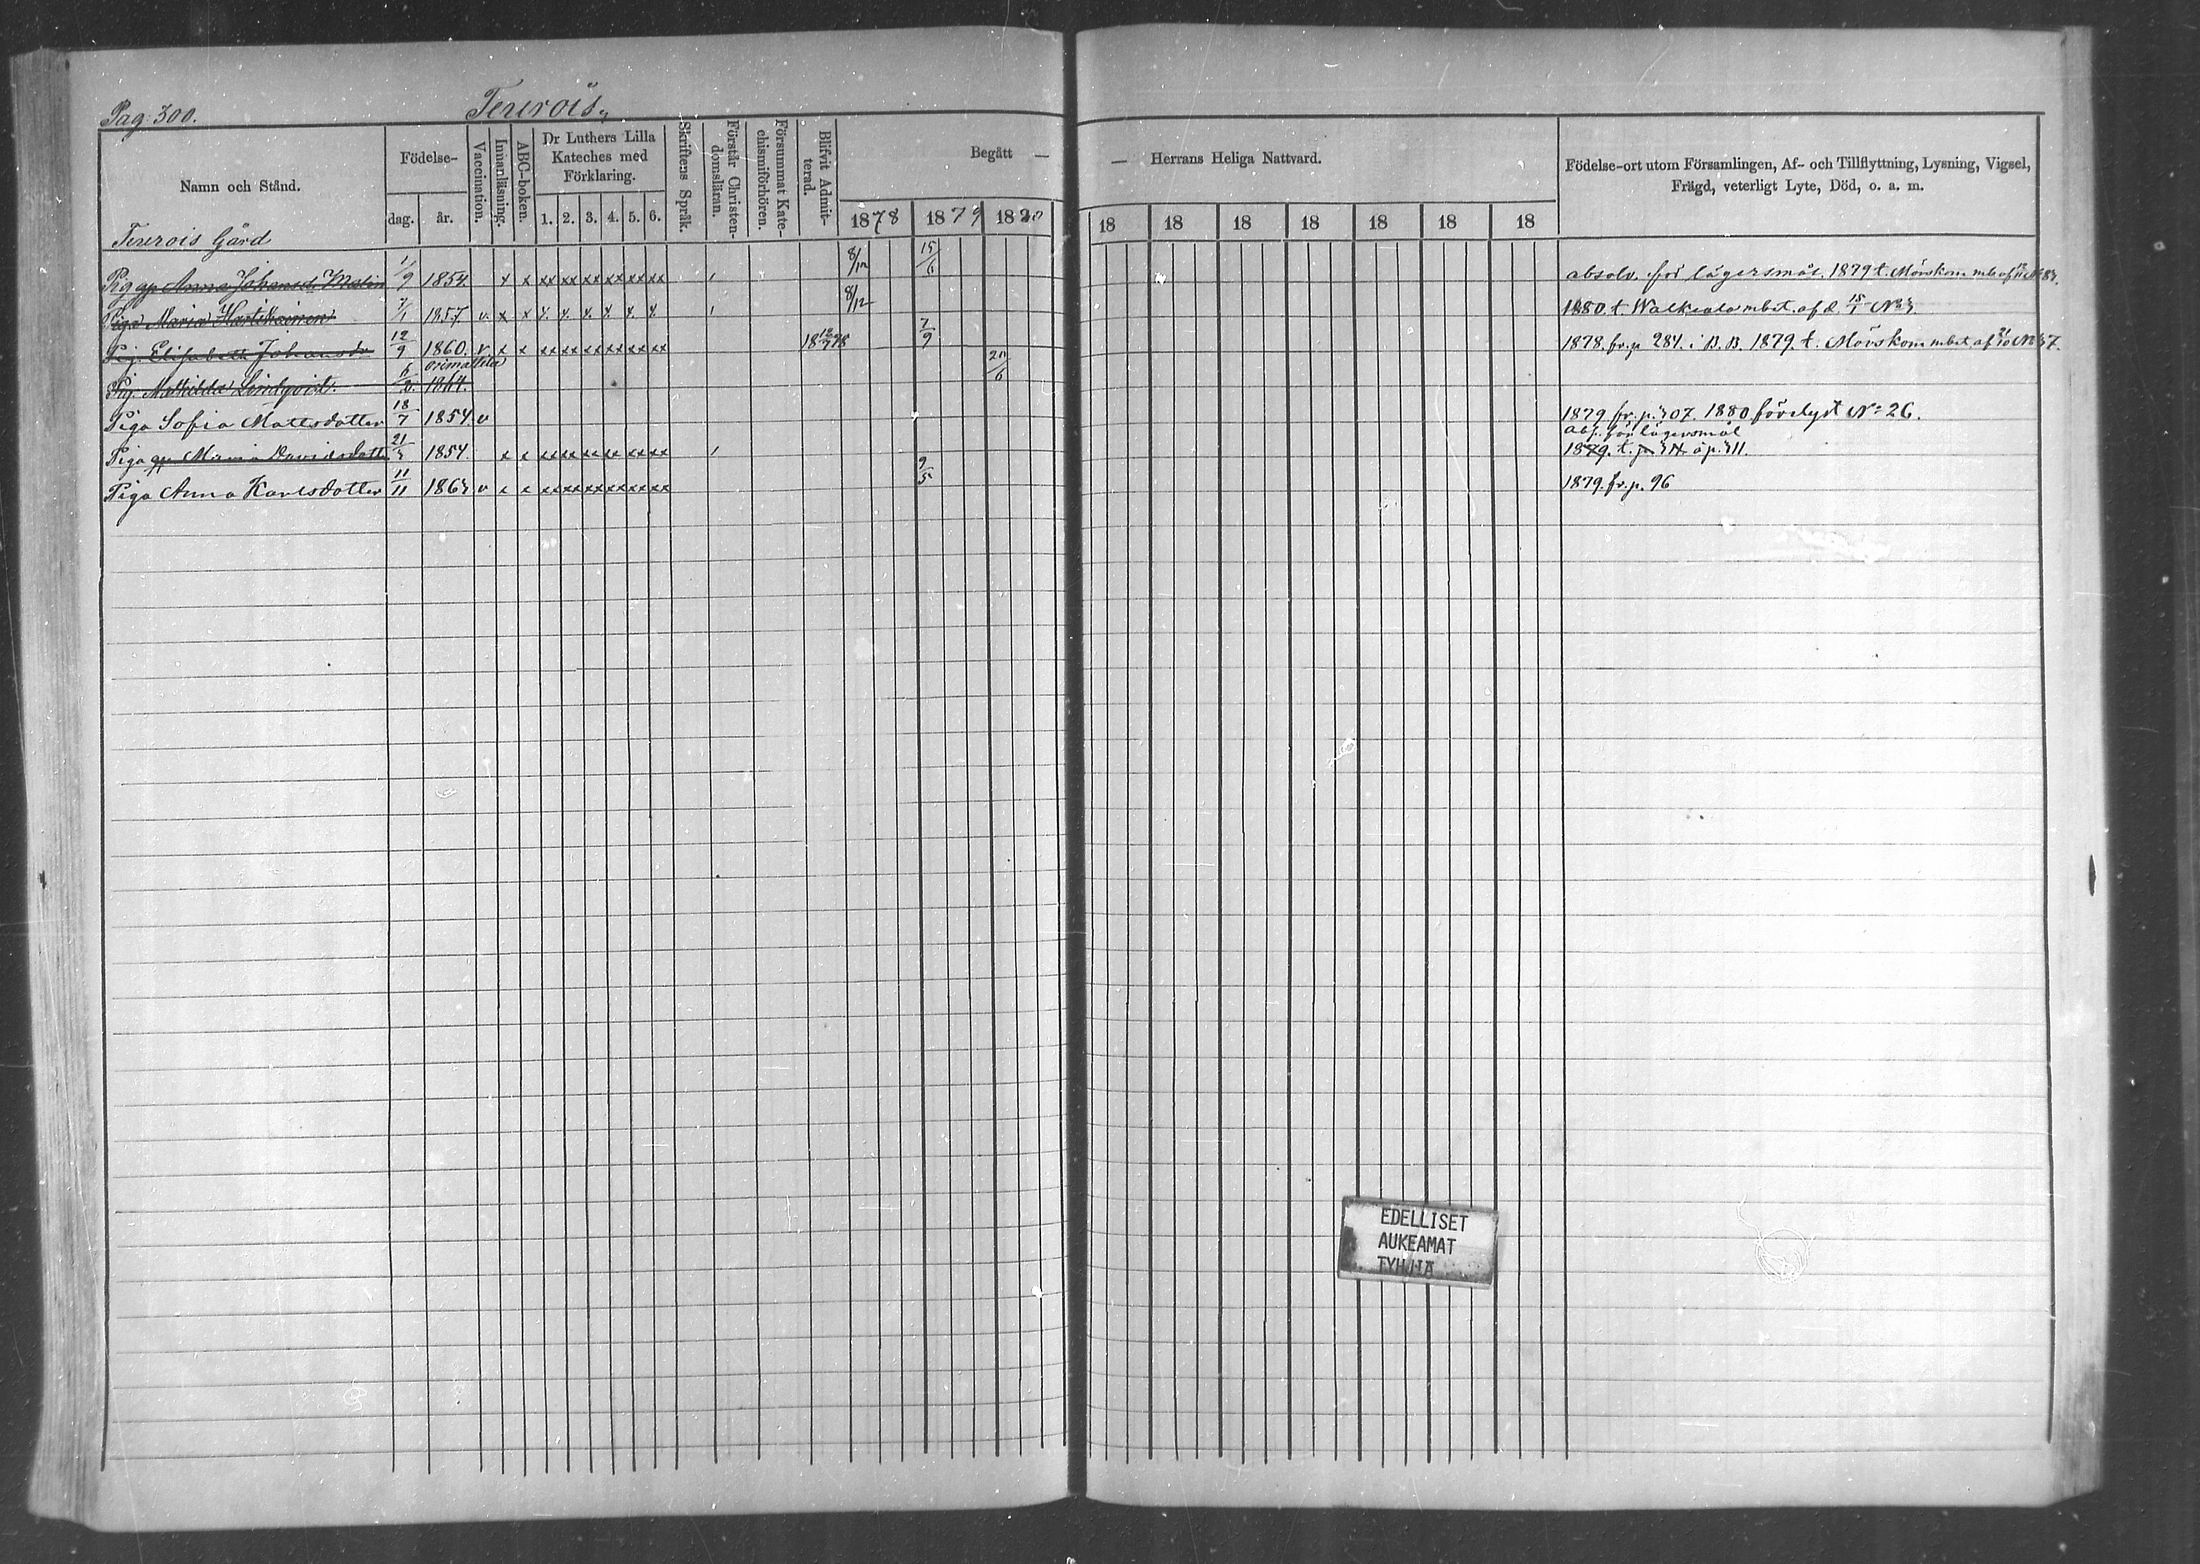 Pag. 300.
Terrois
Namn och Stånd.
Födelse-
dag.
år.
Vaccination.
Innanläsning.
ABC-boken.
Dr Luthers Lilla
Kateches med
Förklaring.
1. 2. 3. 4. 5. 6.
Skriftens Språk.
Förstår Christen-
domsläran.
Försummat Kate-
chismiförhören.
Blifvit Admit-
terad.
Begått —
— Herrans Heliga Nattvard.
1878 1879 1880
18 18 18 18 18 18 18
Födelse-ort utom Församlingen, Af- och Tillflyttning, Lysning, Vigsel,
Frägd, veterligt Lyte, Död, o. a. m.
Terrois Gård
Pig Anna Johansd. Malin 1/9 1854. x x xx xx xx xx xx xx 8/12 15/6 absolv. för lägersmål. 1879 t. Mörskom
Piga Maria Hartikainen 7/1 1857 v. x x x. x. x. x. x. x. 8/12 1880. t. Walkeala mbet. af d. 15/1 No 3.
Pig. Elisabeth Johansdr 12/9 1860. v x x xx xx xx xx xx xx 7/9 1878. fr. p 284. i B. B. 1879. t. Mörskom mbet. af
Orimattila
Pig. Mathilda Lindqvist 20/6
Piga Sofia Mattsdotter 18/7 1854. v 1879 fr. p. 307. 1880 förelyst No 26.
Abs. för lägersmål
Piga Maria Davidsdotter 21/3 1854. x x xx xx xx xx xx xx 1879. t. p. 311.
Piga Anna Karlsdotter 11/11 1863 v x x xx xx xx xx xx xx 9/5 1879. fr. p. 96
EDELLISET
AUKEAMAT
TYHJIÄ